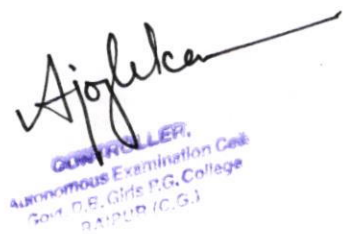 Ajoylekar
CONTROLLER,
Autonomous Examination Cell
Govt. D.B. Girls P.G. College
RAIPUR (C.G.)